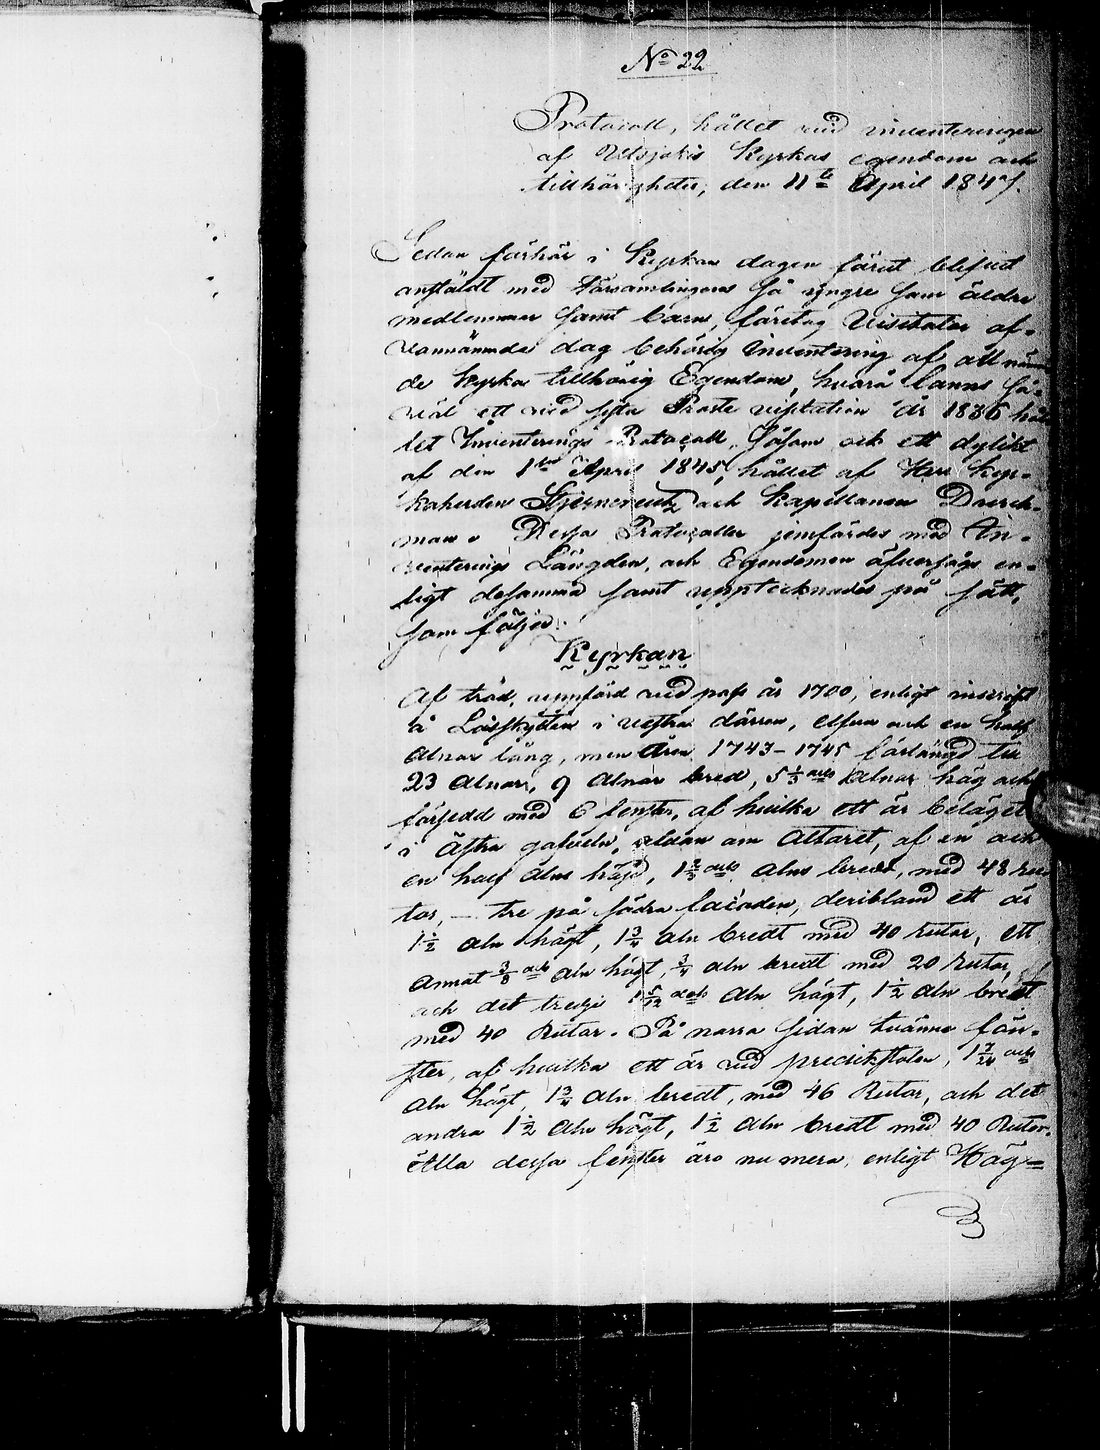 No 22
Protocoll, hållet vid inventeringen
af Utsjokis Kyrkas egendom och
tillhörigheter, den 11te April 1847.
Sedan förhör i Kyrkan dagen förut blifvit
anstäldt med Församlingens så yngre som äldre
medlemmar samt barn, företog Visitator of-
vannämnda dag behörig Inventering af all nämn
de Kyrka tillhörig Egendom, hvarå fanns så-
väl ett vid sista Proste visitation år 1836 hål
let Inventerings Protocoll, såsom ock ett dylikt
af den 1sta April 1845, hållet af Herr Kyr-
koherden Stjerncreutz och Kapellanen Durch-
man. Dessa Protocoller jemfördes med In-
venterings Längden, och Egendomen öfversågs en-
ligt desamma samt upptecknades på sätt,
som följer:
Kyrkan
Af träd, uppförd vid pass år 1700, enligt inscrift
å Låsskylten i vestra dörren, elfva och en half
Alnar lång, men Åren 1743-1745 förlängd till
23 Alnar, 9 Alnar bred, 5 1/3 dels Alnar hög och
försedd med 6 fenster, af hvilka ett är beläget
i Östra gafveln, sidan om Altaret, af en och
en half Alns höjd, 1 2/3 dels Alns bredd, med 48 ru
tor, - tre på södra facaden, deribland ett är
1 1/2 Aln högt, 1 3/4 Aln bredt med 40 rutor, ett
annat 3/8 dels Aln högt, 3/4 Aln bredt med 20 rutor,
och det tredje 1 5/12 dels Aln högt, 1 1/2 Aln bredt
med 40 Rutor. På norra sidan tvänne fön-
ster, af hvilka ett är vid predikstolen, 1 7/24 dels
Aln högt, 1 3/4 Aln bredt, med 46 Rutor, och det
andra 1 1/2 Aln högt, 1 1/2 Aln bredt med 40 Rutor.
Alla dessa fenster äro numera, enligt Hög-